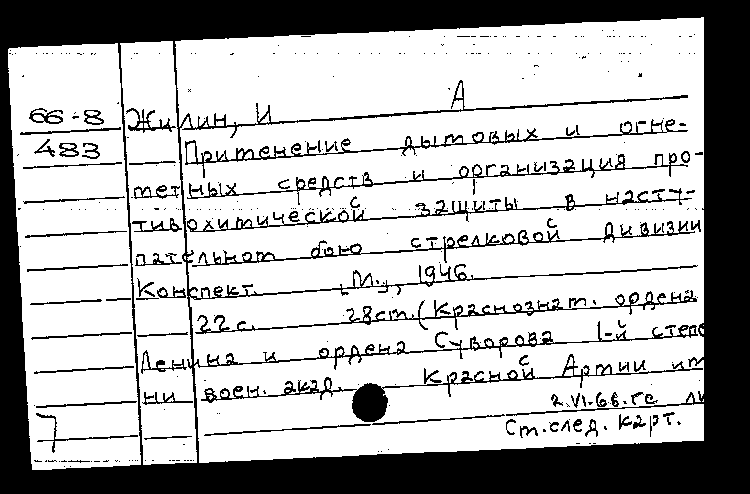 66-8 Жилин, И А
483 Применение дымовых и огне-
метных средств и организация про-
тивохимической защиты в насту-
пательном бою стрелковой дивизии
Конспект. [М.], 1946.
22 с. 28 см. (Краснознам. ордена
Ленина и ордена Суворова 1-й степе
ни воен. акад. Красной Армии им
2.VI.66.гс
См.след. карт.
7